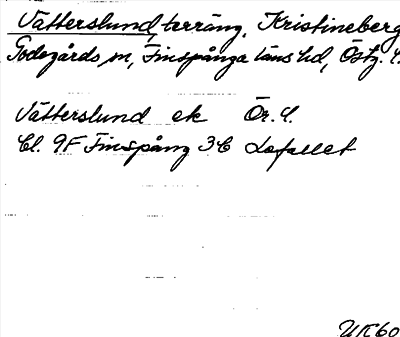 Vätterslund, terräng, Kristineberg
Godegårds sn, Finspånga läns hd, Östg. l.
Vätterslund ek Ör. l.
Bl. 9F Finspång 3C Lofallet
UK60